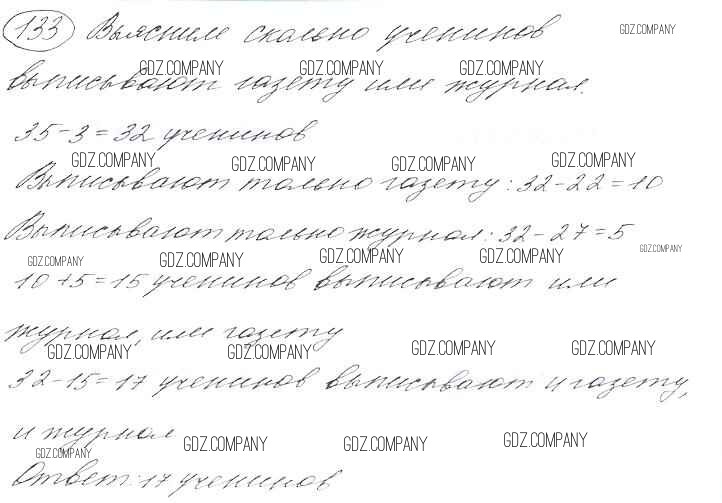 133 Выясним сколько учеников
GDZ.COMPANY
выписывают газету или журнал.
GDZ.COMPANY GDZ.COMPANY GDZ.COMPANY
35-3=32 учеников
GDZ.COMPANY GDZ.COMPANY GDZ.COMPANY GDZ.COMPANY
Выписывают только газету: 32-22=10
Выписывают только журнал: 32-27=5
GDZ.COMPANY GDZ.COMPANY GDZ.COMPANY GDZ.COMPANY GDZ.COMPANY
10+5=15 учеников выписывают или
журнал, или газету
GDZ.COMPANY GDZ.COMPANY GDZ.COMPANY GDZ.COMPANY
32-15=17 учеников выписывают и газету,
и журнал
GDZ.COMPANY GDZ.COMPANY GDZ.COMPANY GDZ.COMPANY
Ответ: 17 учеников